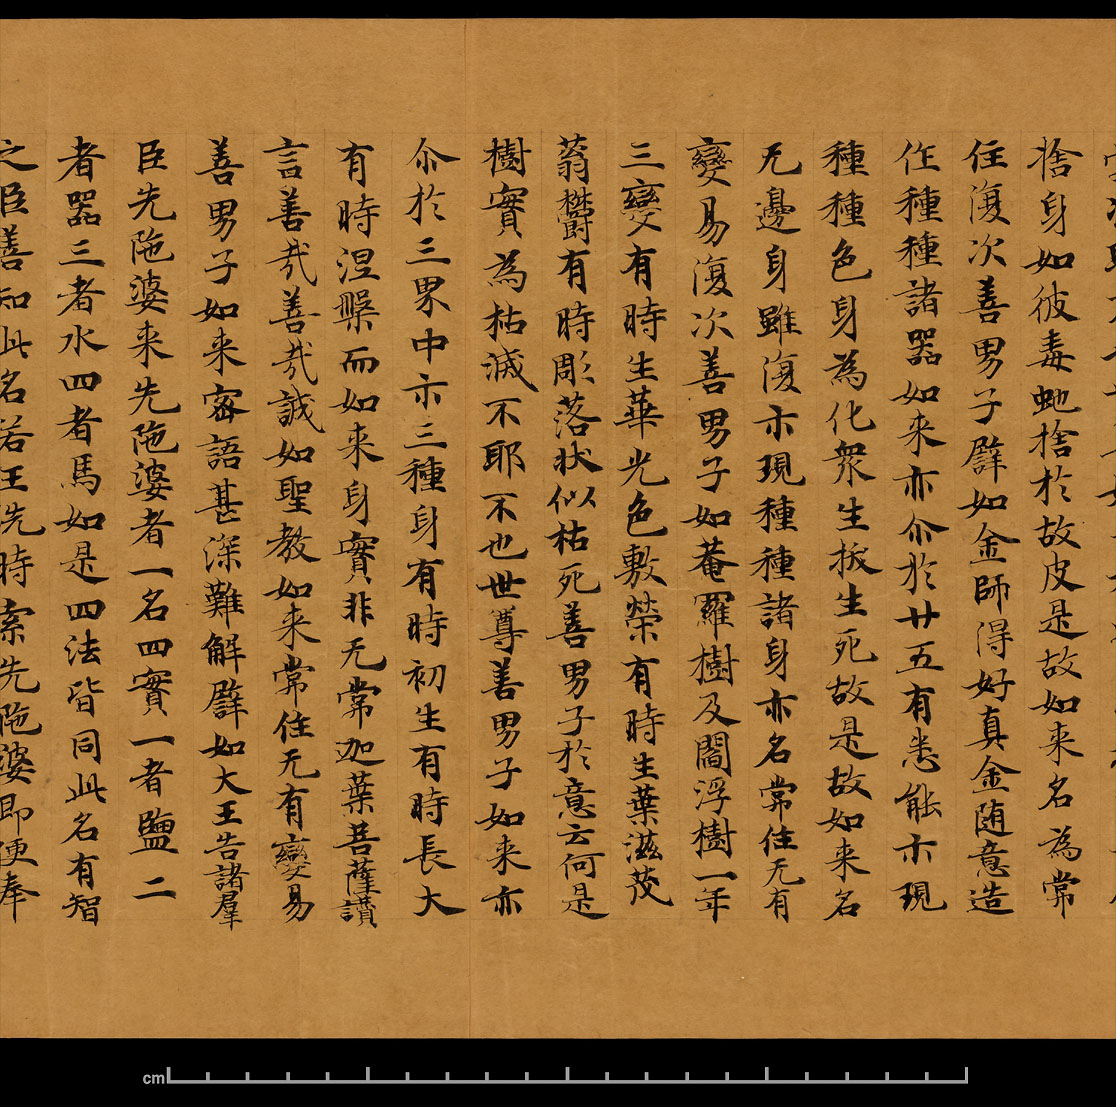 捨身如彼毒虵捨於故皮是故如来名為常
住復次善男子譬如金師得好真金随意造
作種種諸器如来亦尒於廿五有悉能示現
種種色身為化衆生拔生死故是故如来名
无邊身雖復示現種種諸身亦名常住无有
變易復次善男子如菴羅樹及閻浮樹一年
三變有時生華光色敷榮有時生葉滋茂
蓊鬱有時彫落状似枯死善男子於意云何是
樹實為枯滅不耶不也世尊善男子如来亦
尒於三界中示三種身有時初生有時長大
有時涅槃而如来身實非无常迦葉菩薩讃
言善哉善哉誠如聖教如来常住无有變易
善男子如来密語甚深難解譬如大王告諸羣
臣先陁婆来先陁婆者一名四實一者鹽二
者器三者水四者馬如是四法皆同此名有智
之臣善知此名若王洗時索先陁婆即便奉
cm